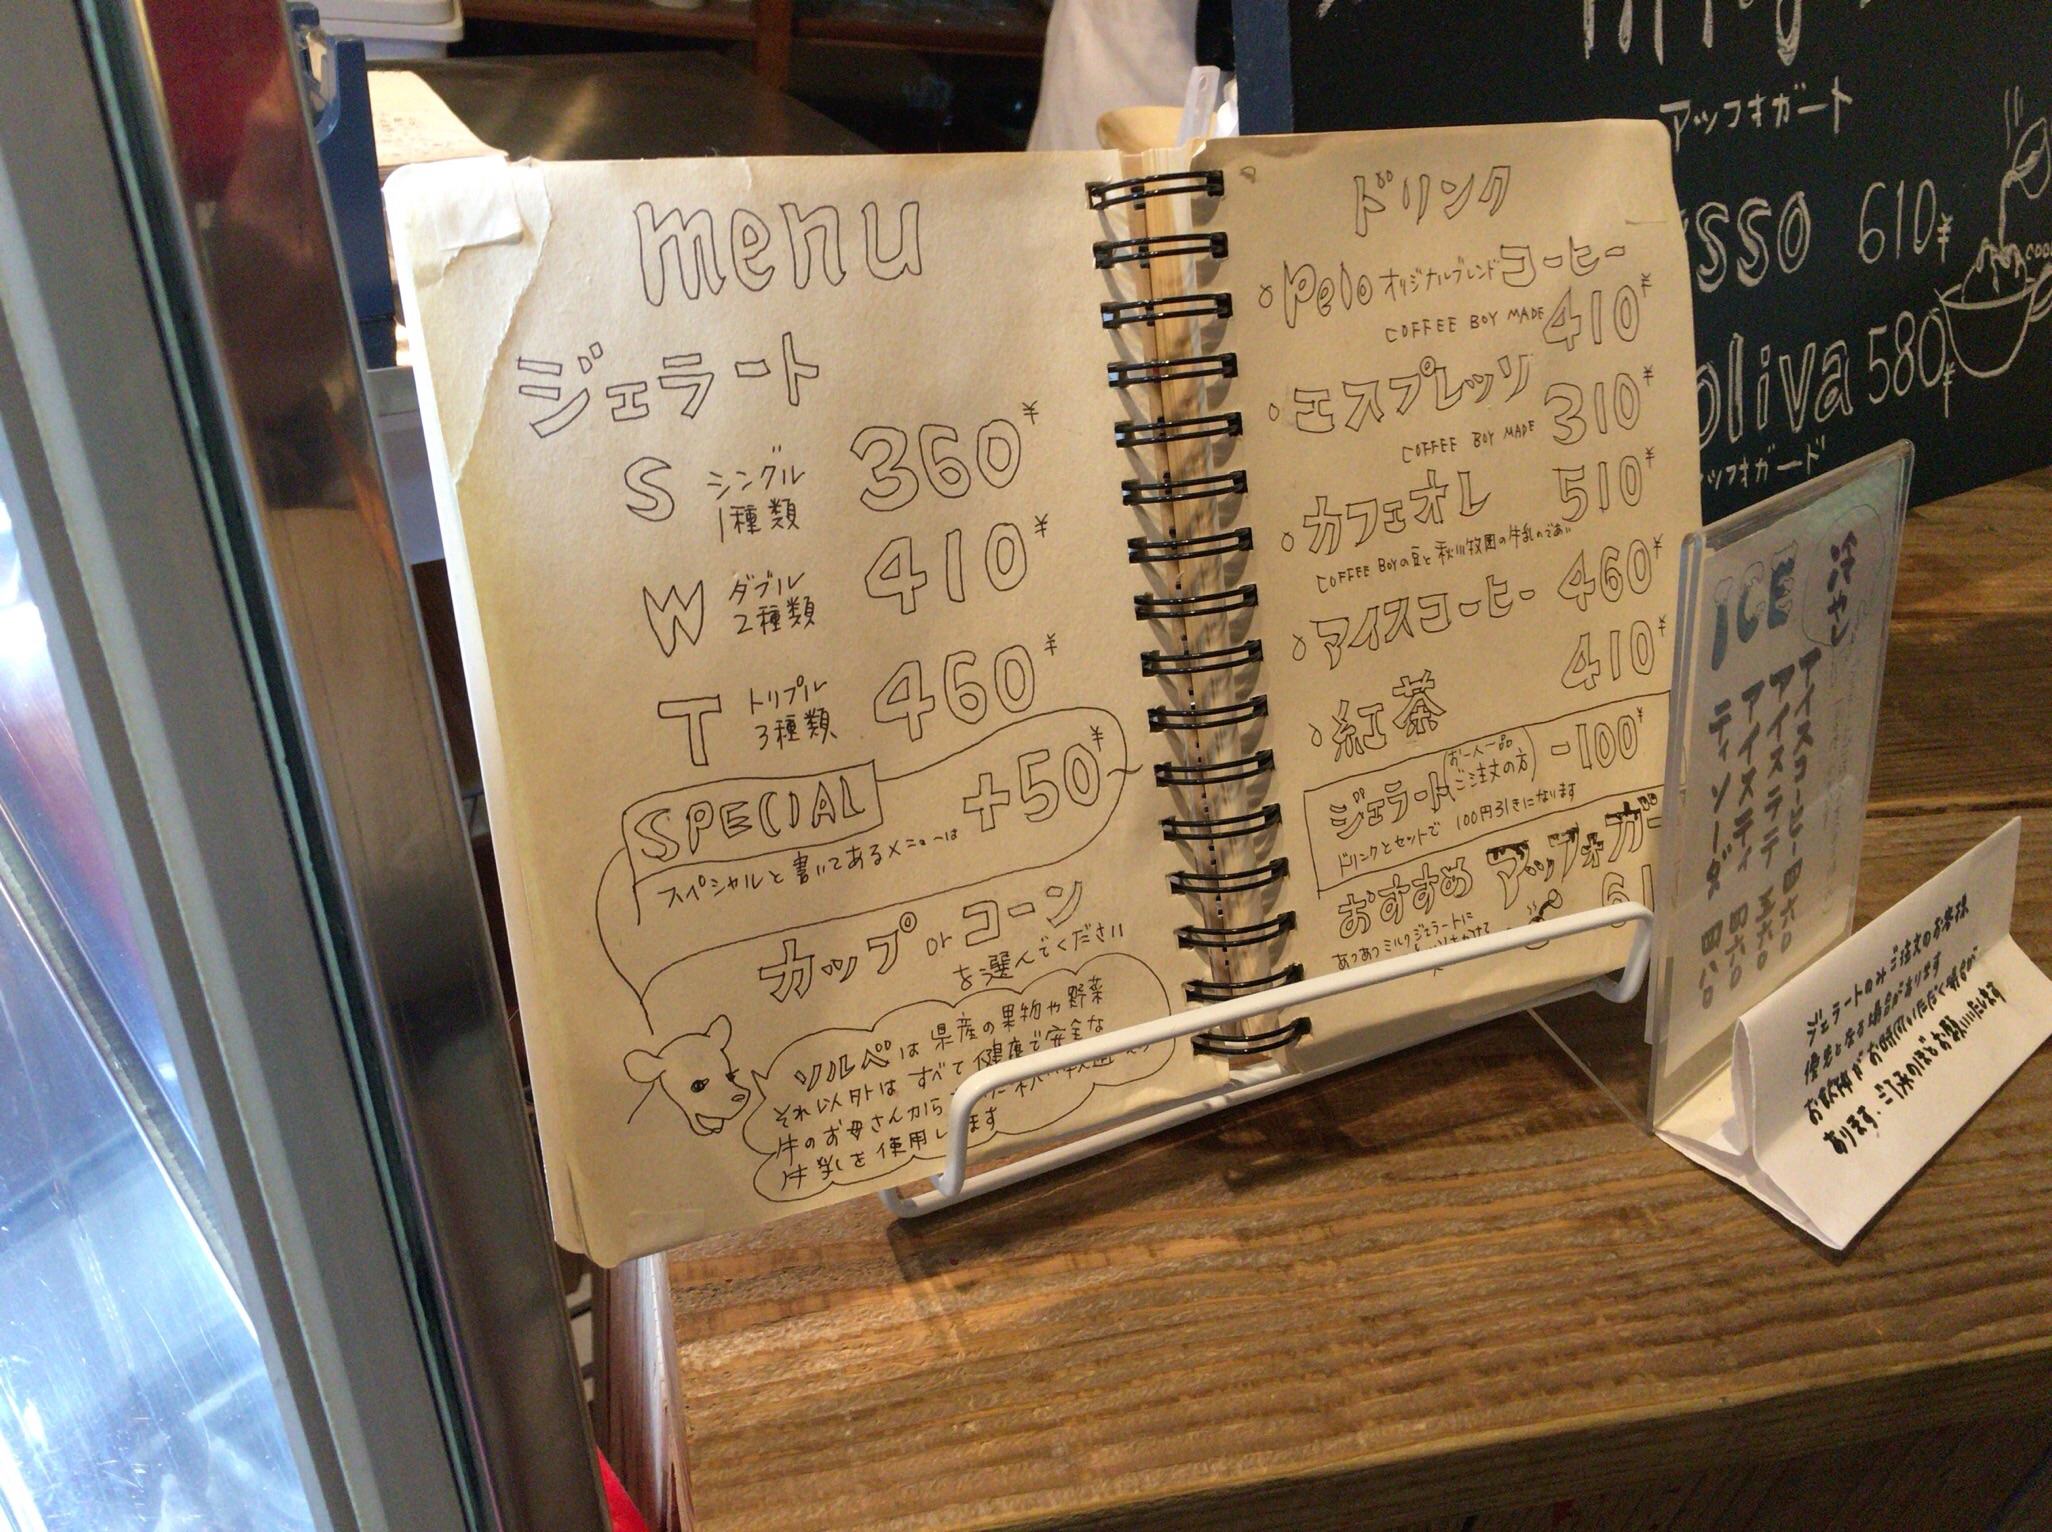 menu
ジェラート
S シングル 1種類 360¥
W ダブル 2種類 410¥
T トリプル 3種類 460¥
SPECIAL +50¥
スペシャルと書いてあるメニューは
カップ or コーン
を選んでください
ソルベは県産の果物や野菜
それ以外はすべて健康で安全な
牛のお母さんから
牛乳を使用します
ドリンク
Pelo オリジナルブレンド コーヒー
COFFEE BOY MADE 410¥
エスプレッソ
COFFEE BOY MADE 310¥
カフェオレ 510¥
COFFEE BOYの豆と秋川牧園の牛乳のであい
アイスコーヒー 460¥
紅茶 410¥
ジェラート(お一人一品ご注文の方) -100¥
ドリンクとセットで 100円引きになります
おすすめ アッフォガー
61
あつあつミルクジェラートに
アッフォガート
sso 610¥
oliva 580¥
ッフォガード
冷やし
ICE
アイスコーヒー 四六〇
アイスラテ 五六〇
アイスティ 四六〇
ティソーダ 四八〇
ジェラートのみご注文のお客様
優先と出る場合があります
お飲物がお時間いただく場合が
あります。ご了承のほどお願いいたします